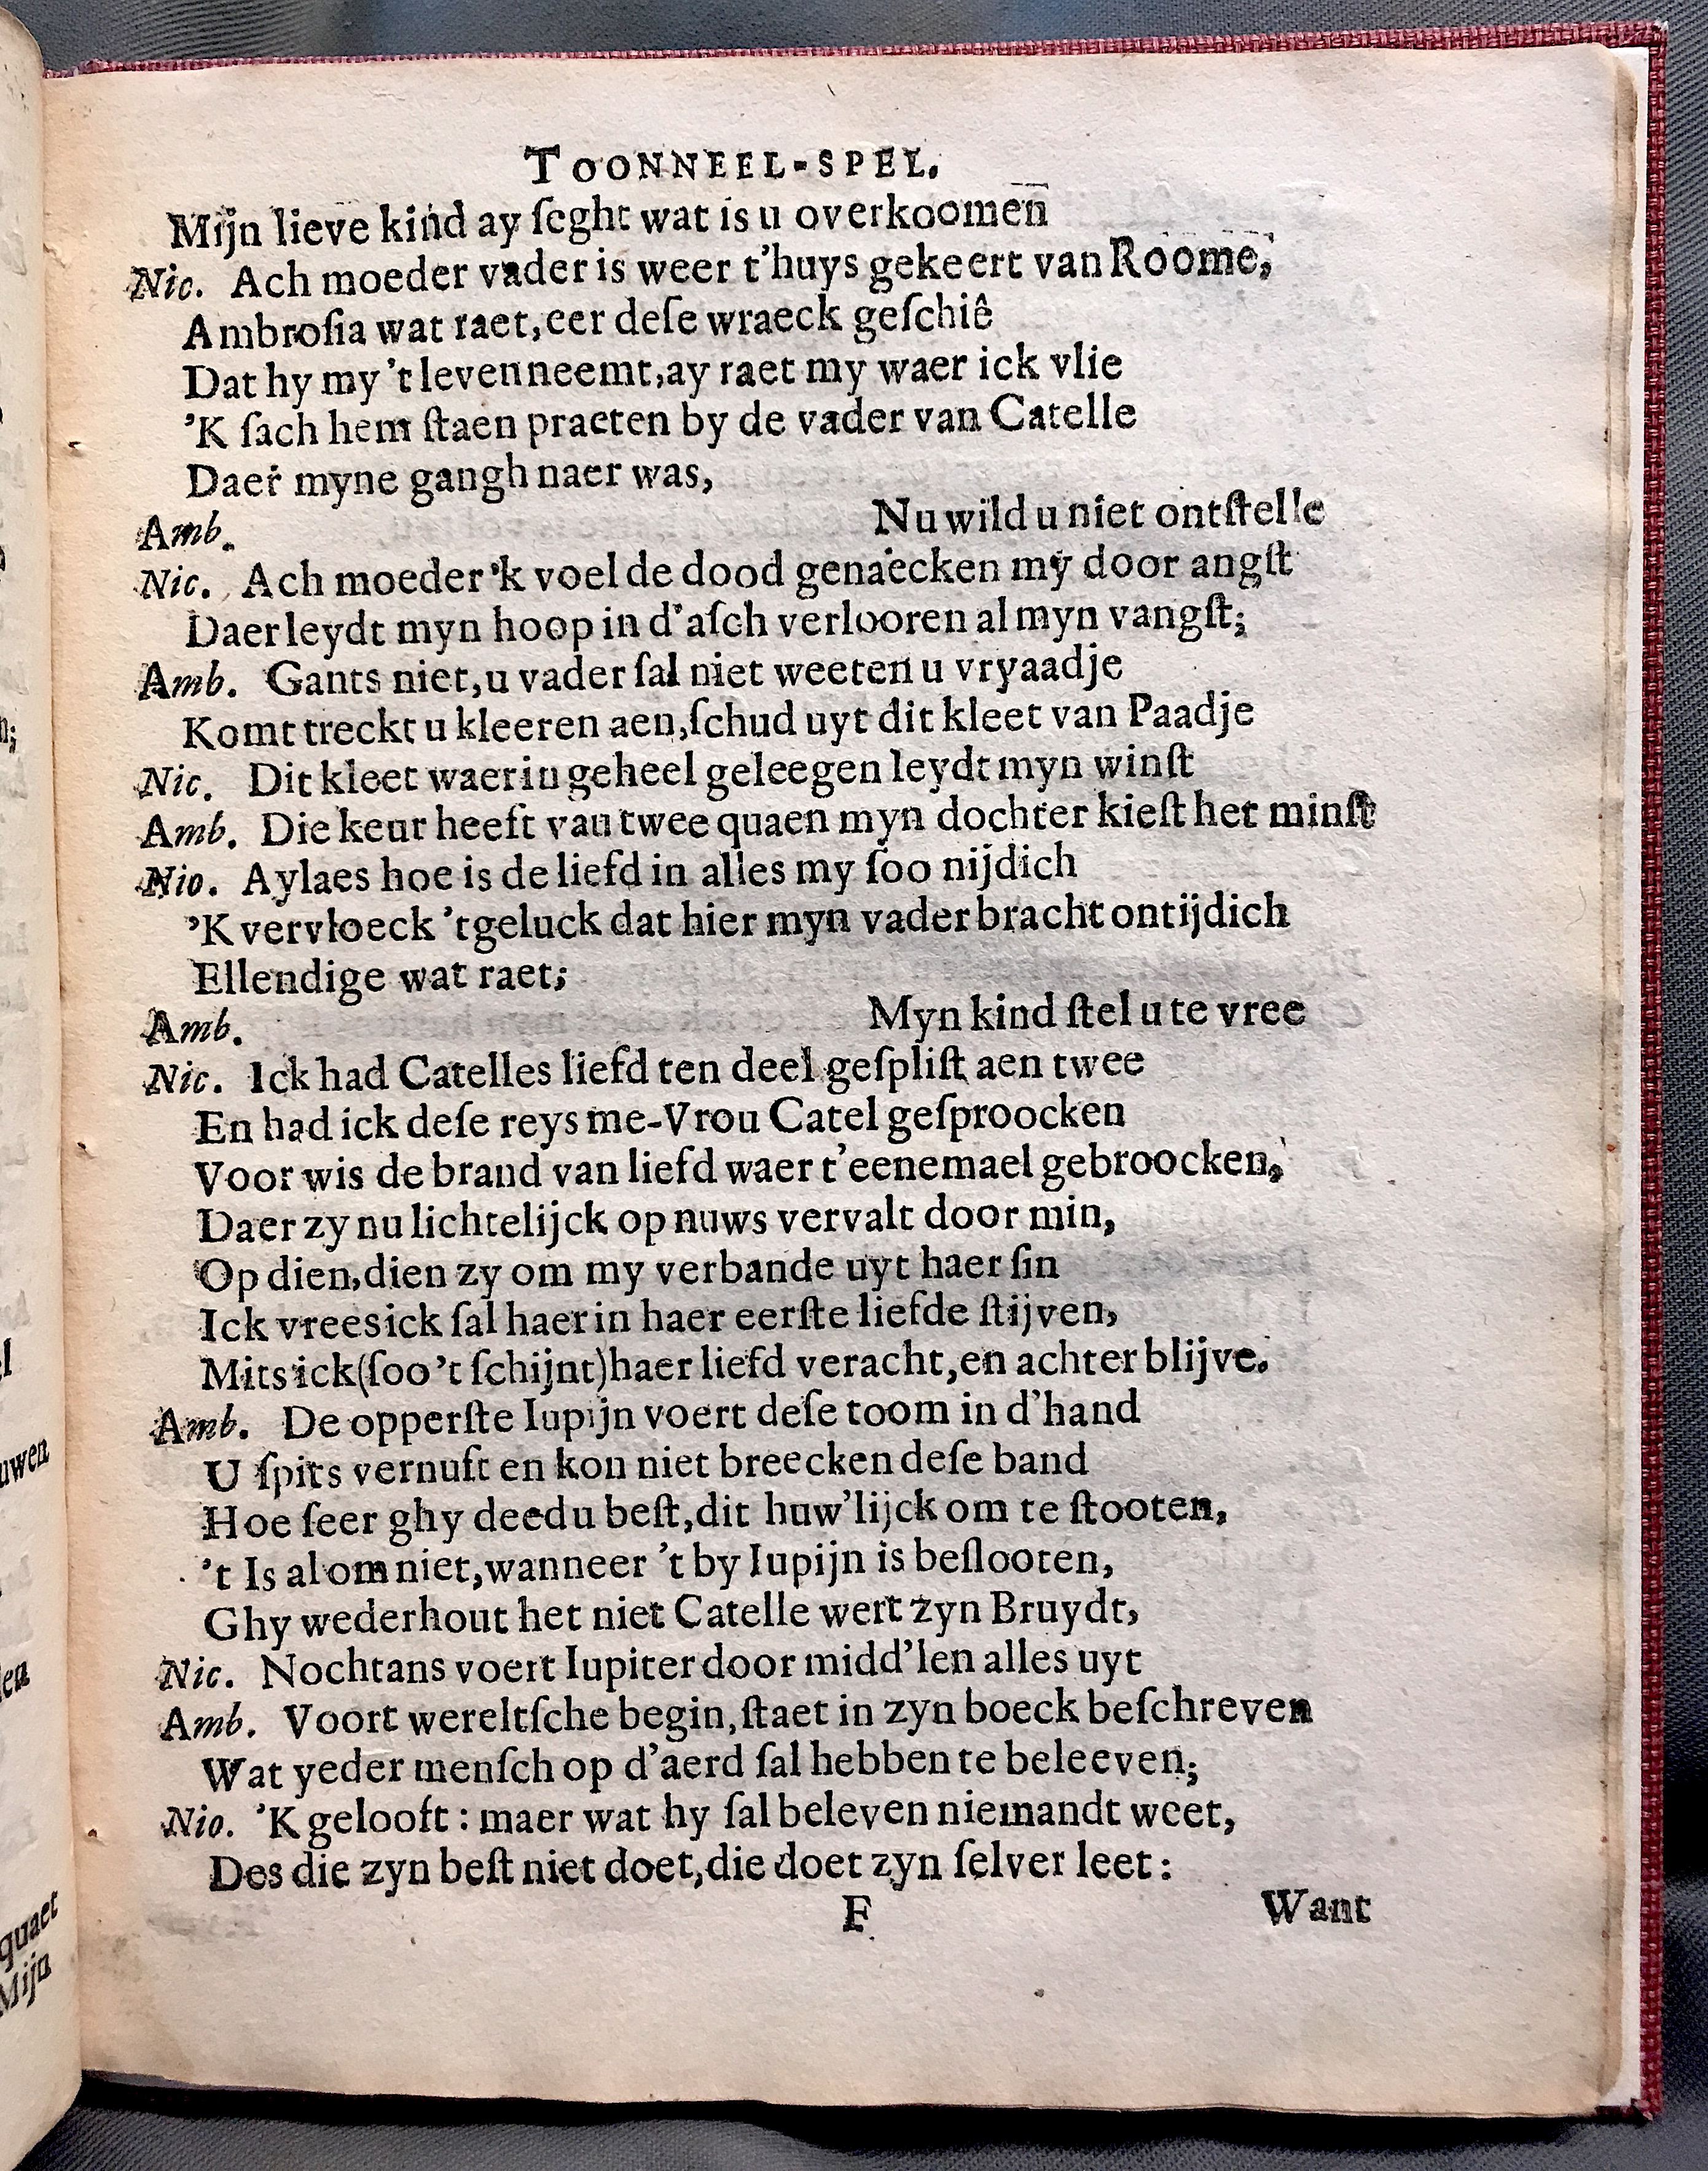 TOONNEEL-SPEL.
Mijn lieve kind ay ſeght wat is u overkoomen
Nic. Ach moeder vader is weer t'huys gekeert van Roome,
Ambroſia wat raet, eer deſe wraeck geſchiê
Dat hy my 't leven neemt, ay raet my waer ick vlie
'K ſach hem ſtaen praeten by de vader van Catelle
Daer myne gangh naer was,
Amb. Nu wild u niet ontſtelle
Nic. Ach moeder 'k voel de dood genaecken my door angſt
Daer leydt myn hoop in d'aſch verlooren al myn vangſt;
Amb. Gants niet, u vader ſal niet weeten u vryaadje
Komt treckt u kleeren aen, ſchud uyt dit kleet van Paadje
Nic. Dit kleet waerin geheel geleegen leydt myn winſt
Amb. Die keur heeft van twee quaen myn dochter kieſt het minſt
Nio. Aylaes hoe is de liefd in alles my ſoo nijdich
'K vervloeck 't geluck dat hier myn vader bracht ontijdich
Ellendige wat raet;
Amb. Myn kind ſtel u te vree
Nic. Ick had Catelles liefd ten deel geſpliſt aen twee
En had ick deſe reys me-Vrou Catel geſproocken
Voor wis de brand van liefd waer t'eenemael gebroocken,
Daer zy nu lichtelijck op nuws vervalt door min,
Op dien, dien zy om my verbande uyt haer ſin
Ick vrees ick ſal haer in haer eerſte liefde ſtijven,
Mits ick (ſoo 't ſchijnt) haer liefd veracht, en achter blijve.
Amb. De opperſte Iupijn voert deſe toom in d'hand
U ſpits vernuft en kon niet breecken deſe band
Hoe ſeer ghy deed u beſt, dit huw'lijck om te ſtooten,
't Is al om niet, wanneer 't by Iupijn is beſlooten,
Ghy wederhout het niet Catelle wert zyn Bruydt,
Nic. Nochtans voert Iupiter door midd'len alles uyt
Amb. Voort wereltſche begin, ſtaet in zyn boeck beſchreven
Wat yeder menſch op d'aerd ſal hebben te beleeven;
Nio. 'K gelooft : maer wat hy ſal beleven niemandt weet,
Des die zyn beſt niet doet, die doet zyn ſelver leet :
F Want